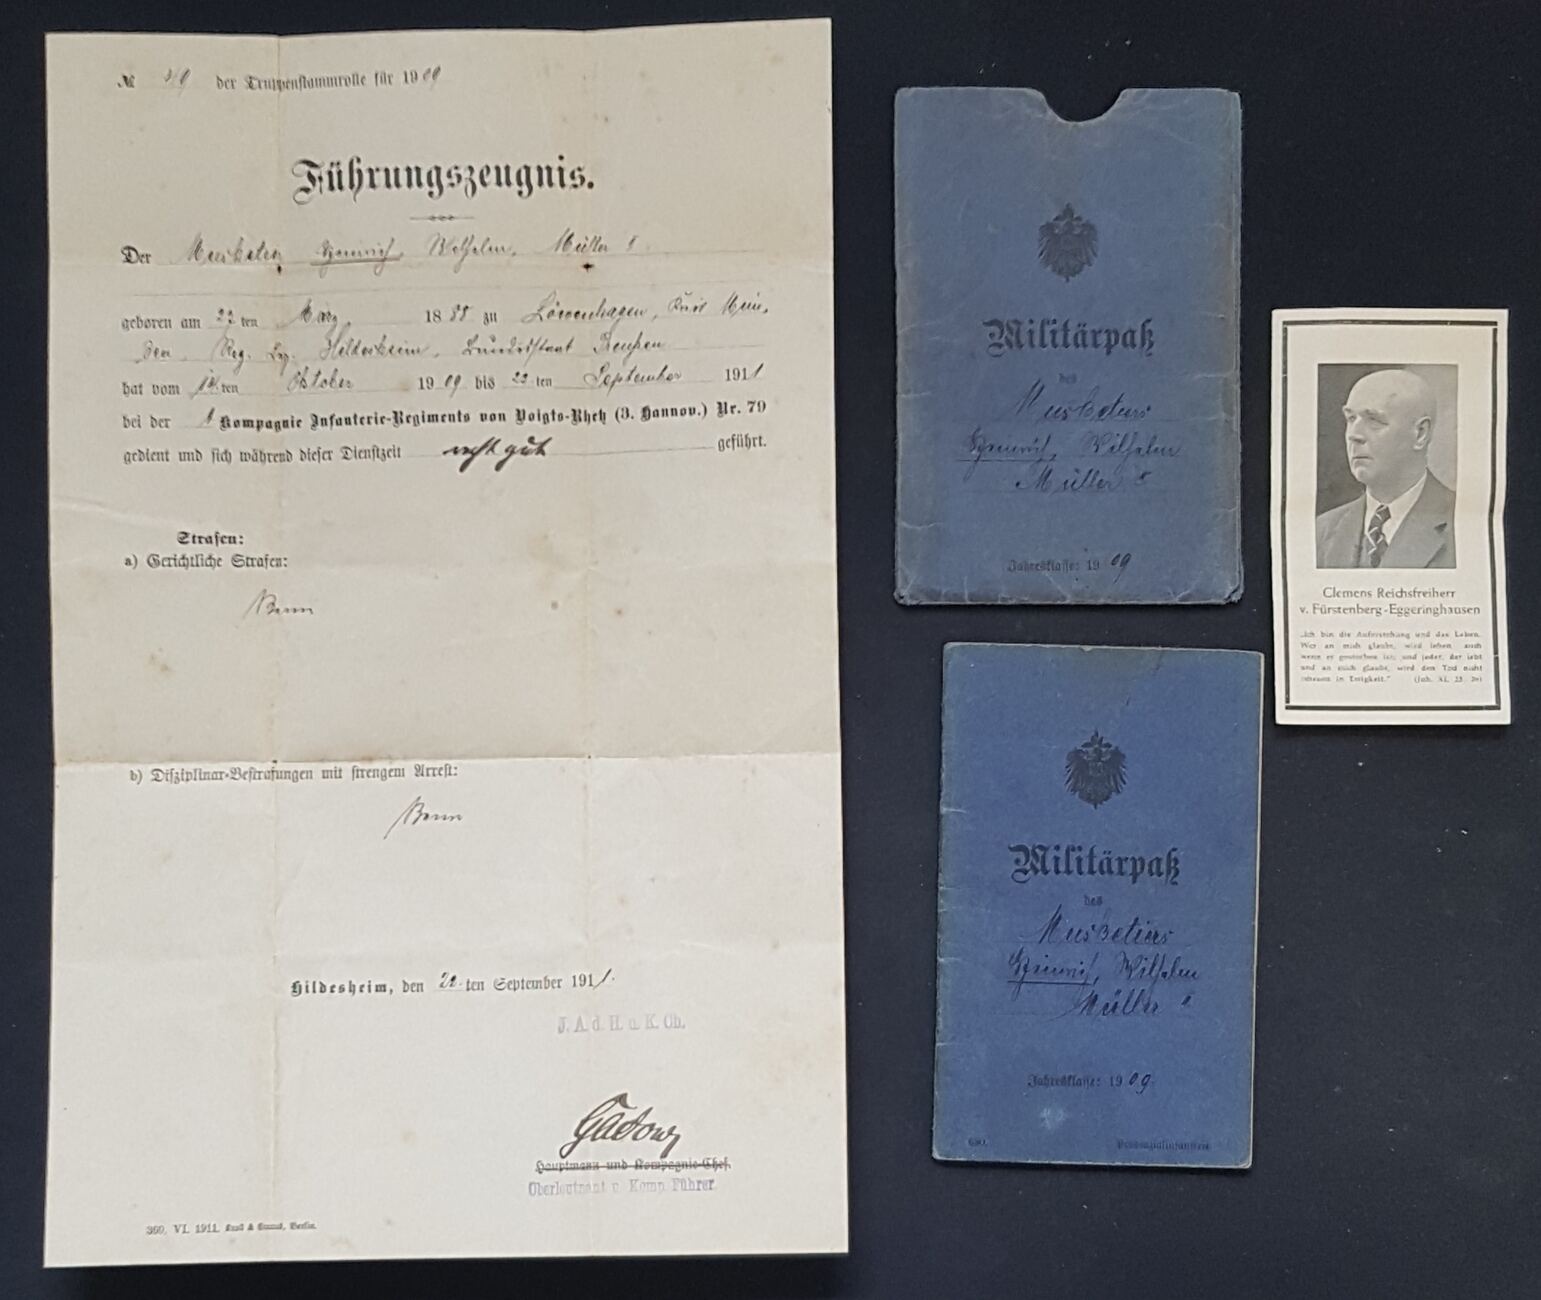 № der Truppenstammrolle für 1909
Führungszeugnis.
Der Musketier Heinrich, Wilhelm, Müller
geboren am 22 ten März 1888 zu Löwenhagen, Kreis Mün-
den Reg. Bez. Hildesheim, Bundesstaat Preußen
hat vom ten Oktober 1909 bis 22 ten September 1911
bei der Kompagnie Infanterie-Regiments von Voigts-Rhetz (3. Hannov.) Nr. 79
gedient und sich während dieser Dienstzeit recht gut geführt.
Strafen:
a) Gerichtliche Strafen:
Keine
b) Disziplinar-Bestrafungen mit strengem Arrest:
Keine
Hildesheim, den 22. ten September 1911.
J. A. d. H. u. K. Ch.
Hauptmann und Kompagnie-Chef.
Oberleutnant u. Komp. Führer.
360. VI. 1911. Berlin.
Militärpaß
des
Musketiers
Heinrich, Wilhelm
Müller
Jahresklasse: 1909
Militärpaß
des
Musketiers
Heinrich, Wilhelm
Müller
Jahresklasse: 1909.
Clemens Reichsfreiherr
v. Fürstenberg-Eggeringhausen
„Ich bin die Auferstehung und das Leben.
Wer an mich glaubt, wird leben, auch
wenn er gestorben ist; und jeder, der lebt
und an mich glaubt, wird den Tod nicht
schauen in Ewigkeit." (Joh. XI, 25. 26)